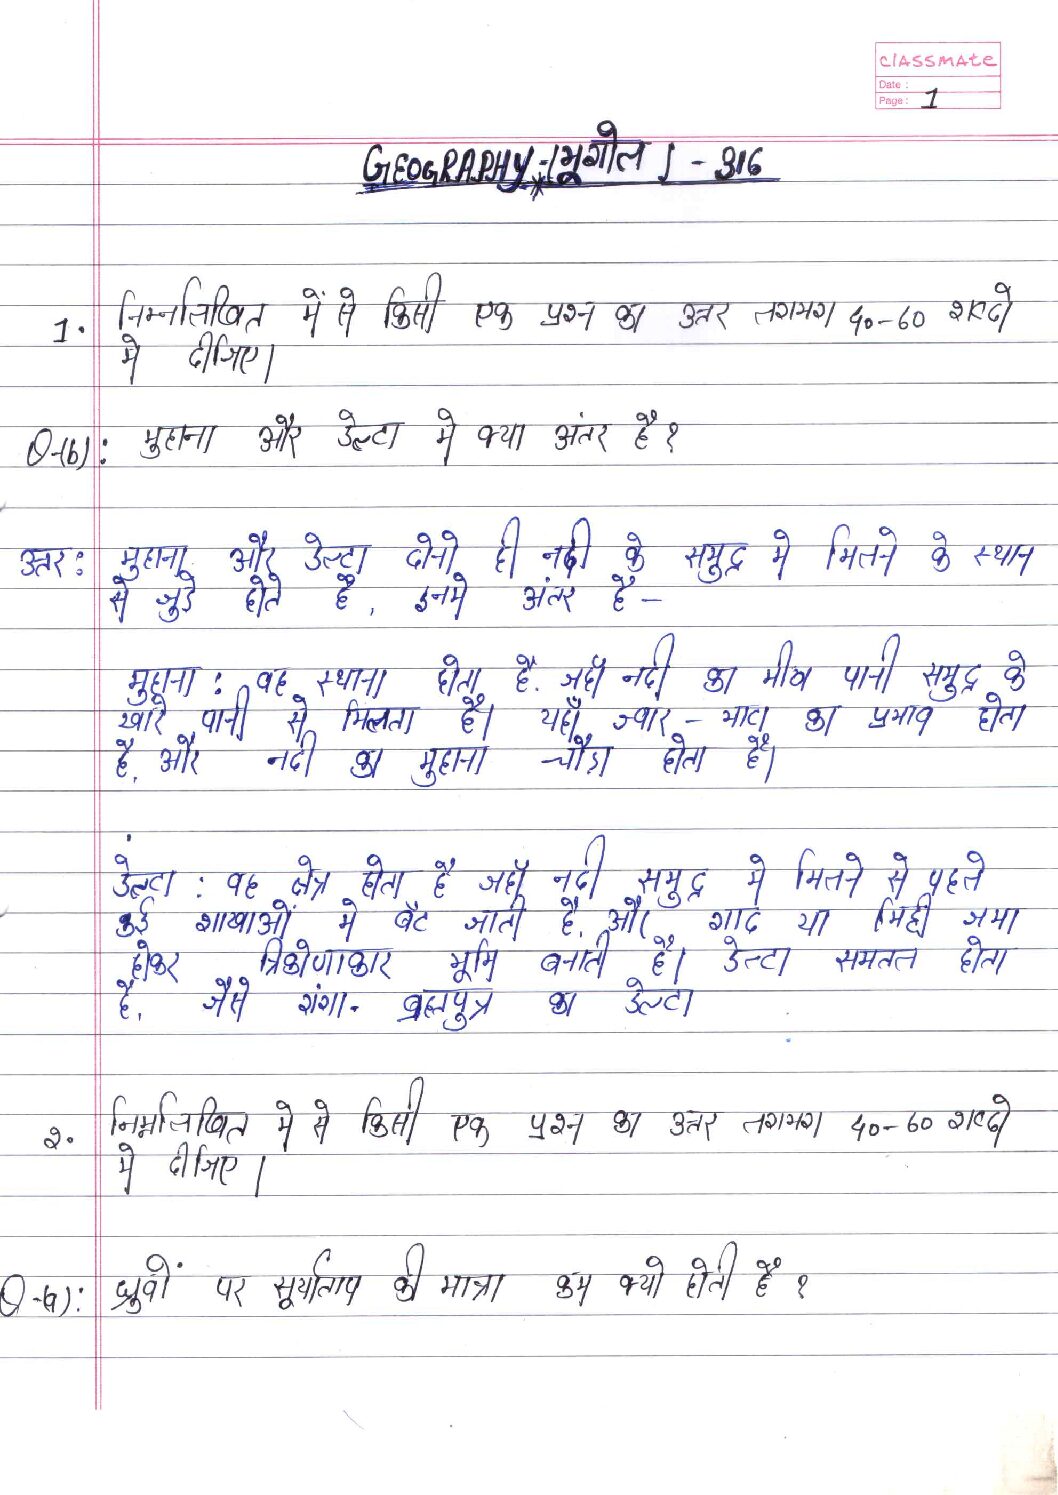 classmate
Date :
Page : 1
GEOGRAPHY-(भूगोल) - 316
1. निम्नलिखित में से किसी एक प्रश्न का उत्तर लगभग 40-60 शब्दो
मे दीजिए।
Q-(b): मुहाना और डेल्टा मे क्या अंतर है?
उत्तर: मुहाना और डेल्टा दोनो ही नदी के समुद्र मे मिलने के स्थान
से जुड़े होते है, इनमे अंतर है –
मुहाना : वह स्थाना होता है. जहाँ नदी का मीठा पानी समुद्र के
खारे पानी से मिलता है। यहाँ ज्वार – भाटा का प्रभाव होता
है, और नदी का मुहाना चौड़ा होता है।
डेल्टा : वह क्षेत्र होता है जहाँ नदी समुद्र मे मिलने से पहले
कई शाखाओं मे बँट जाती है, और गाद या मिट्टी जमा
होकर त्रिकोणाकार भूमि बनाती है। डेल्टा समतल होता
है, जैसे गंगा- ब्रह्मपुत्र का डेल्टा
2. निम्नलिखित मे से किसी एक प्रश्न का उत्तर लगभग 40-60 शब्दो
मे दीजिए।
Q-(a): ध्रुवों पर सूर्याताप की मात्रा कम क्यो होती है?